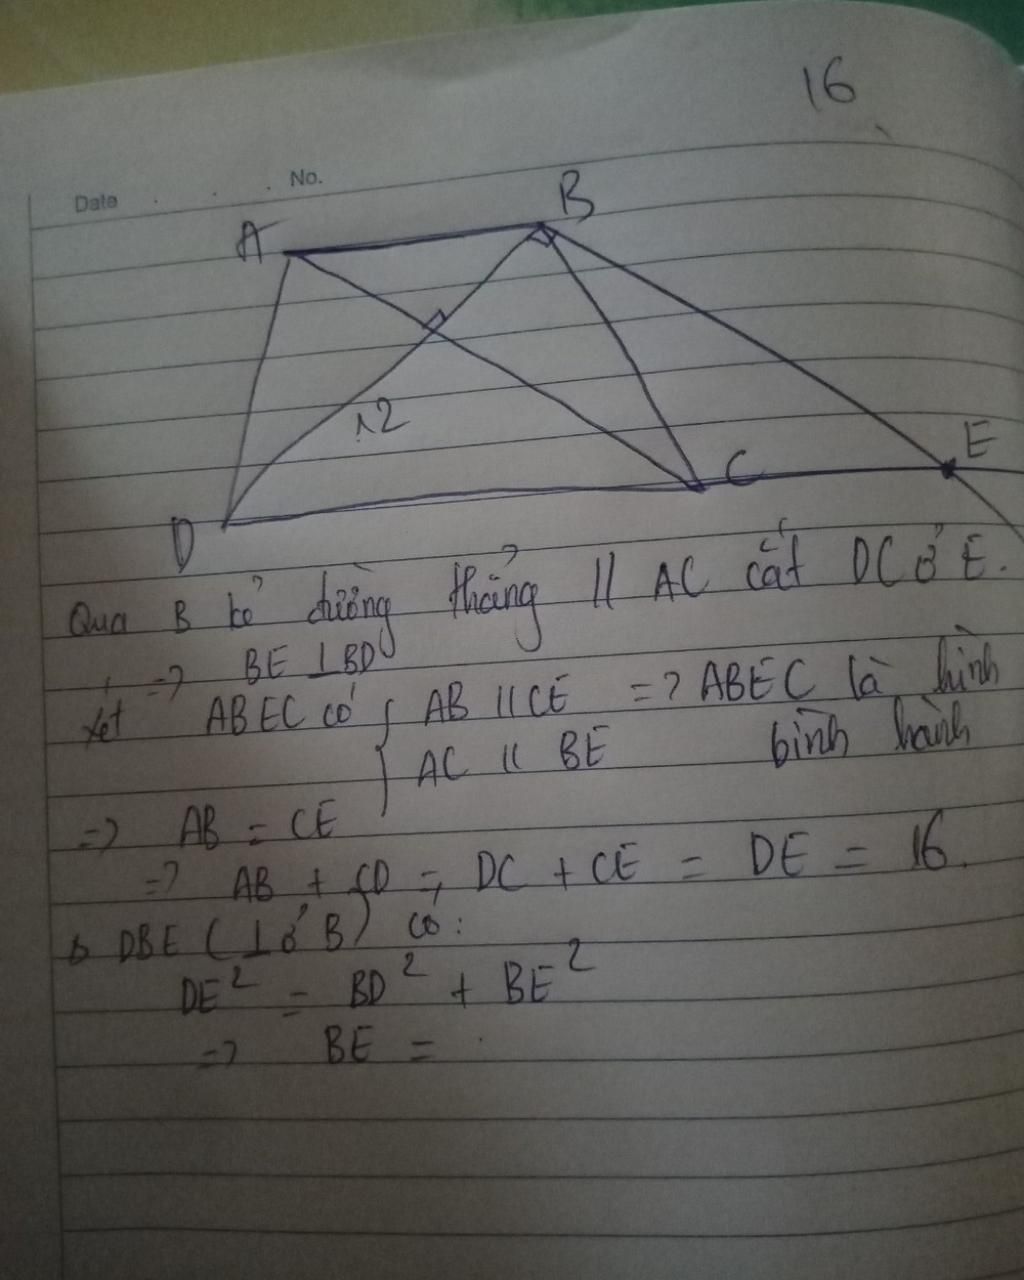 16
Date No.
A B
12
D C E
Qua B kẻ đường thẳng // AC cắt DC ở E.
=> BE ⊥ BD
Xét ABEC có { AB // CE => ABEC là hình
AC // BE bình hành
=> AB = CE
=> AB + CD = DC + CE = DE = 16.
Δ DBE (⊥ ở B) có:
DE² = BD² + BE²
=> BE =